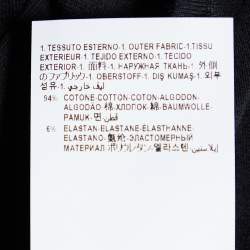 1. TESSUTO ESTERNO-1. OUTER FABRIC-1.TISSU
EXTERIEUR-1. TEJIDO EXTERNO-1. TECIDO
EXTERIOR-1. 面料-1. НАРУЖНАЯ ТКАНЬ-1. 外側
のファブリック-1. OBERSTOFF-1. DIŞ KUMAŞ-1. 외부
섬유-1. ليف خارجي
94% COTONE-COTTON-COTON-ALGODON-
ALGODÃO-棉-ХЛОПОК-綿-BAUMWOLLE-
PAMUK-면-قطن
6% ELASTAN-ELASTANE-ÉLASTHANNE-
ELASTANO-ЭЛАСТОМЕРНЫЙ
МАТЕРИАЛ-ポリウレタン-엘라스텐-إيلاستين